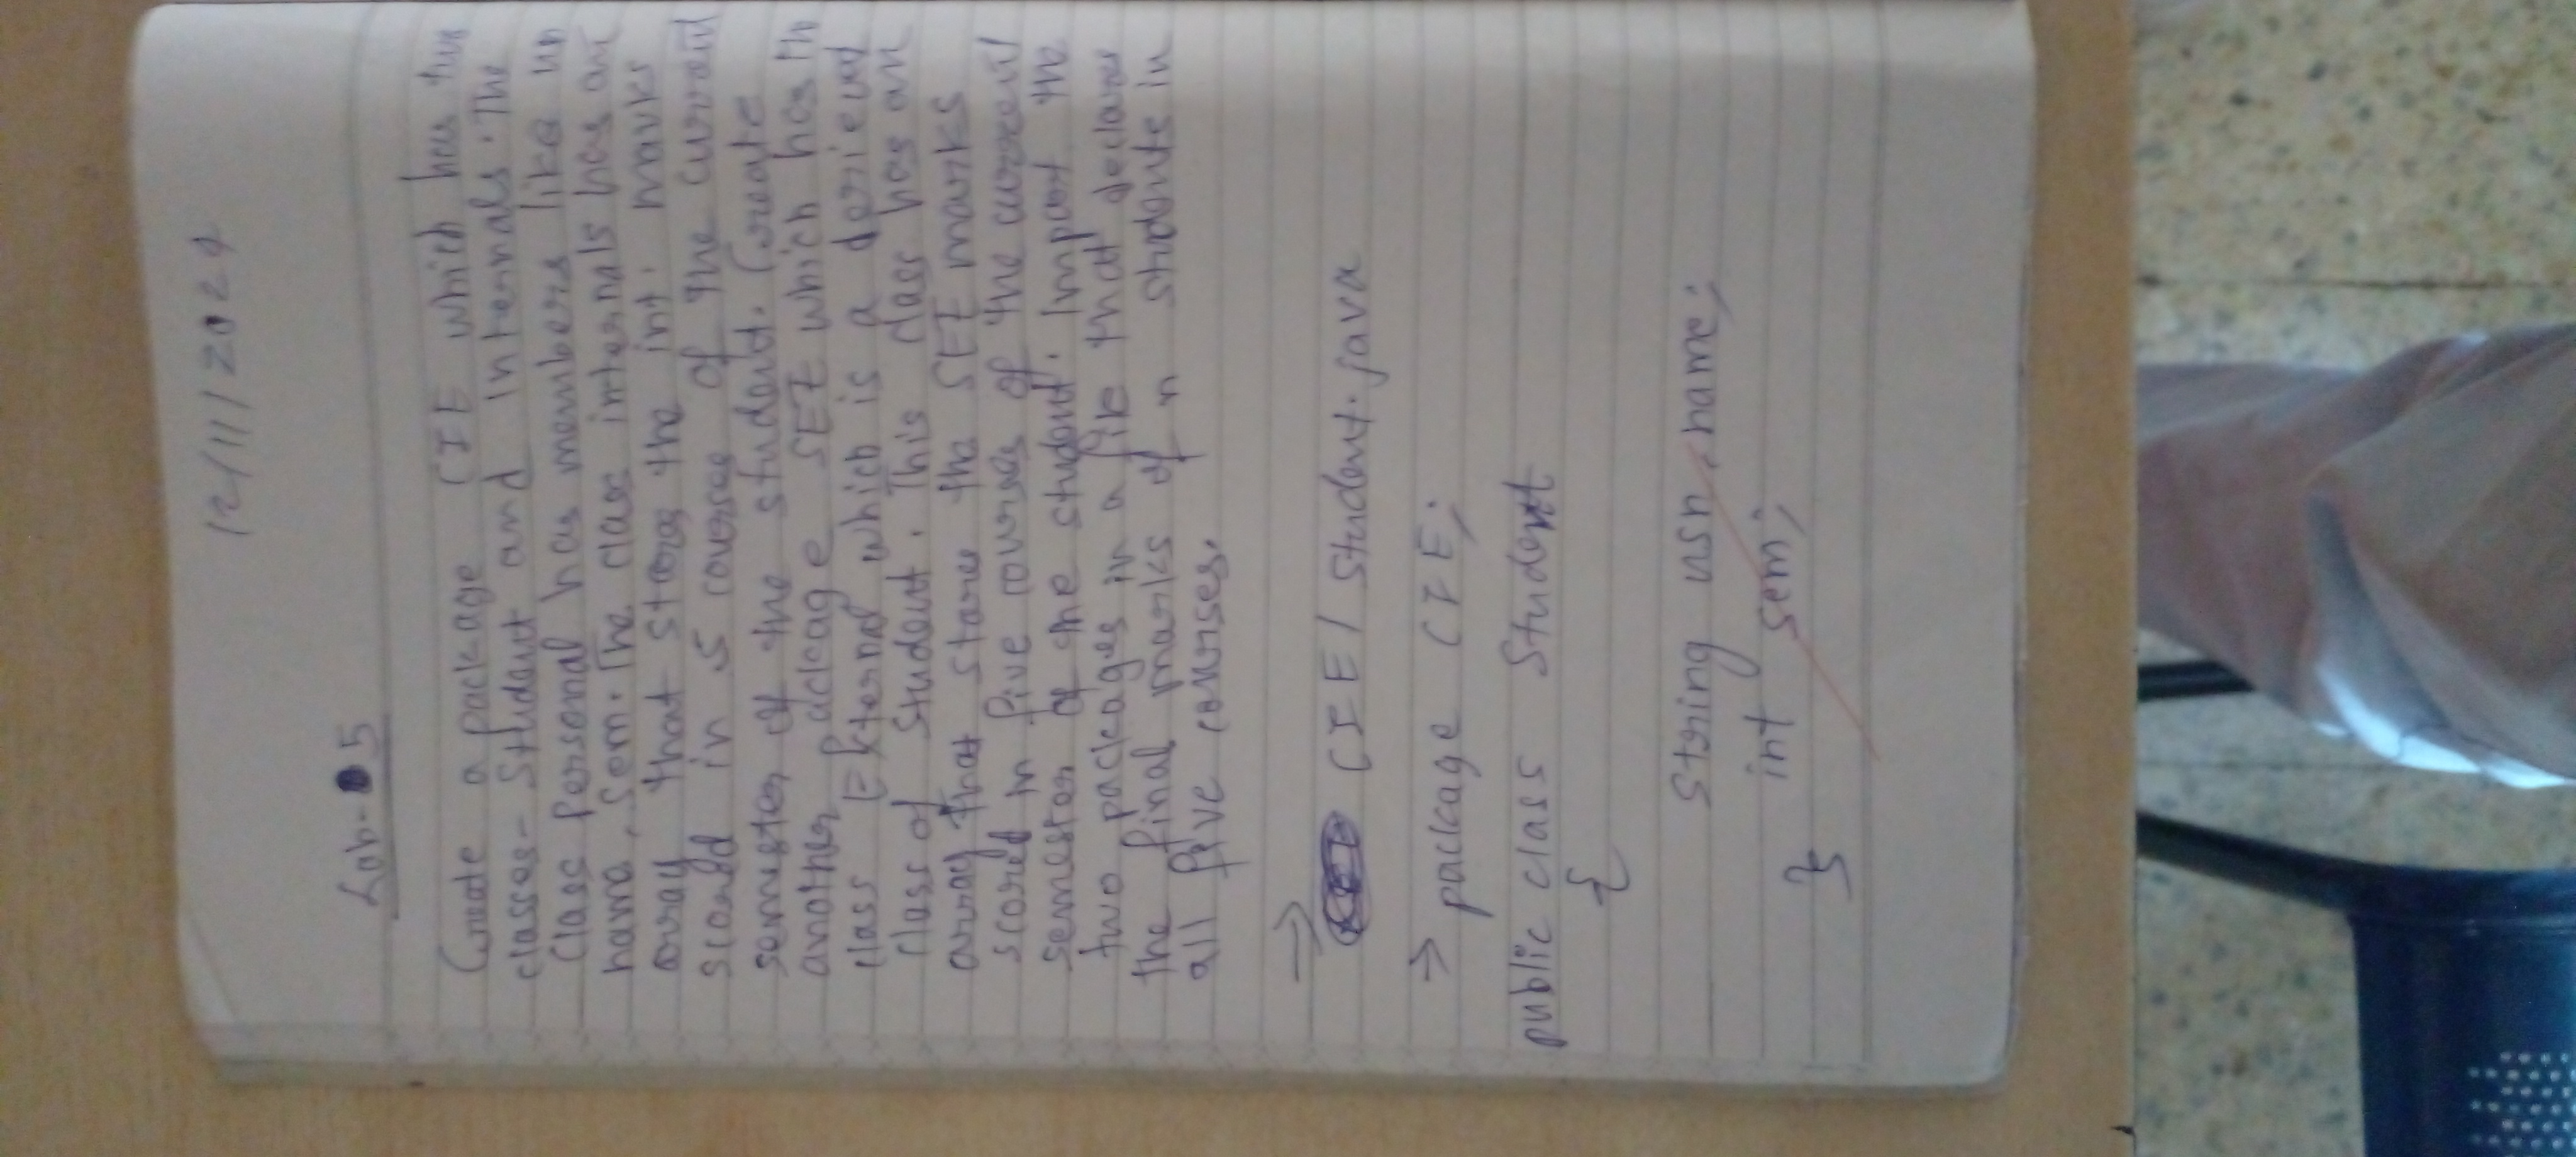 12/11/2024
Lab-5
Create a package CIE which has two
classes- Student and internals. The
class personal has members like usn
name, sem. The class internals has an
array that stores the int. marks
scored in 5 courses of the current
semster of the student. Create
another package SEE which has th
class External which is a derieved
class of student. This class has an
array that stores the SEE marks
scored in five courses of the current
semester of the student. Import the
two packages in a file that declares
the final marks of n students in
all five courses.
→
CIE/Student.java
→ package CIE;
public class Student
{
String usn, name;
int sem;
}